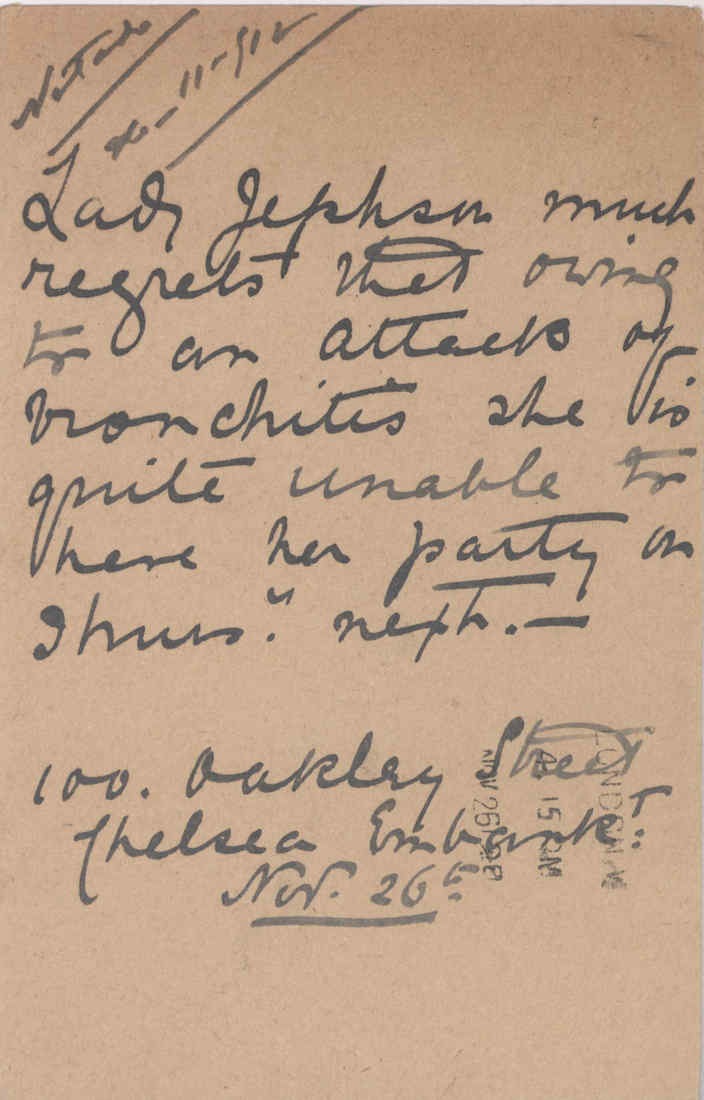 Noted
26-11-912
Lady Jephson much
regrets that owing
to an attack of
bronchitis she is
quite unable to
have her party on
Thurs:" next. —
100. Oakley Street
Chelsea Embankt:
Nov. 26th
LONDON
4 15 PM
NOV 26